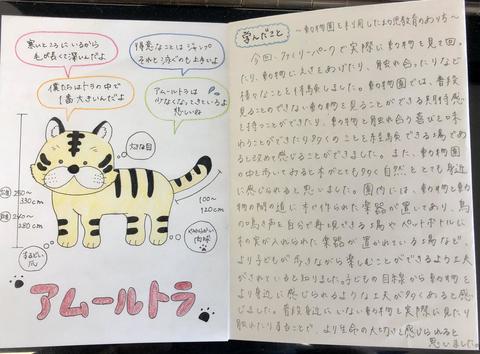 寒いところにいるから
毛が長くて深いんだよ
得意なことはジャンプ
それと泳ぐのも上手いよ
僕たちはトラの中で
1番大きいんだよ
アムールトラは
少なくなってきているよ
悲しいね
大きな目
250〜
330cm
240〜
280cm
100〜
120cm
するどい
爪
やわらかい
肉球
アムールトラ
学んだこと
〜動物園を利用した幼児教育のあり方〜
今回、ファミリーパークで実際に動物を見て回っ
たり、動物にえさをあげたり、触れ合ったりなど
様々なことを体験しました。動物園では、普段
見ることのできない動物を見ることができる特別感
を持つことができたり、動物と触れ合う喜びを味
わうことができたり多くのことを経験できる場であ
ると改めて感じることができました。また、動物園
の中を歩いてみると木がとても多く自然ととても身近
に感じられると思いました。園内には、動物と動物
の間の道に木で作られた楽器が置いてあり、鳥
の鳴き声を自分で再現できる場やペットボトルに
木の実が入れられた楽器が置かれている場など、
より子どもが歩きながら楽しむことができるよう工夫
がされていると知りました。子どもの目線から動物を
より身近に感じられるような工夫が多くあると感
じました。普段身近にいない動物を実際に見たり
触れたりすることで、より生命の大切さを感じられると
思いました。